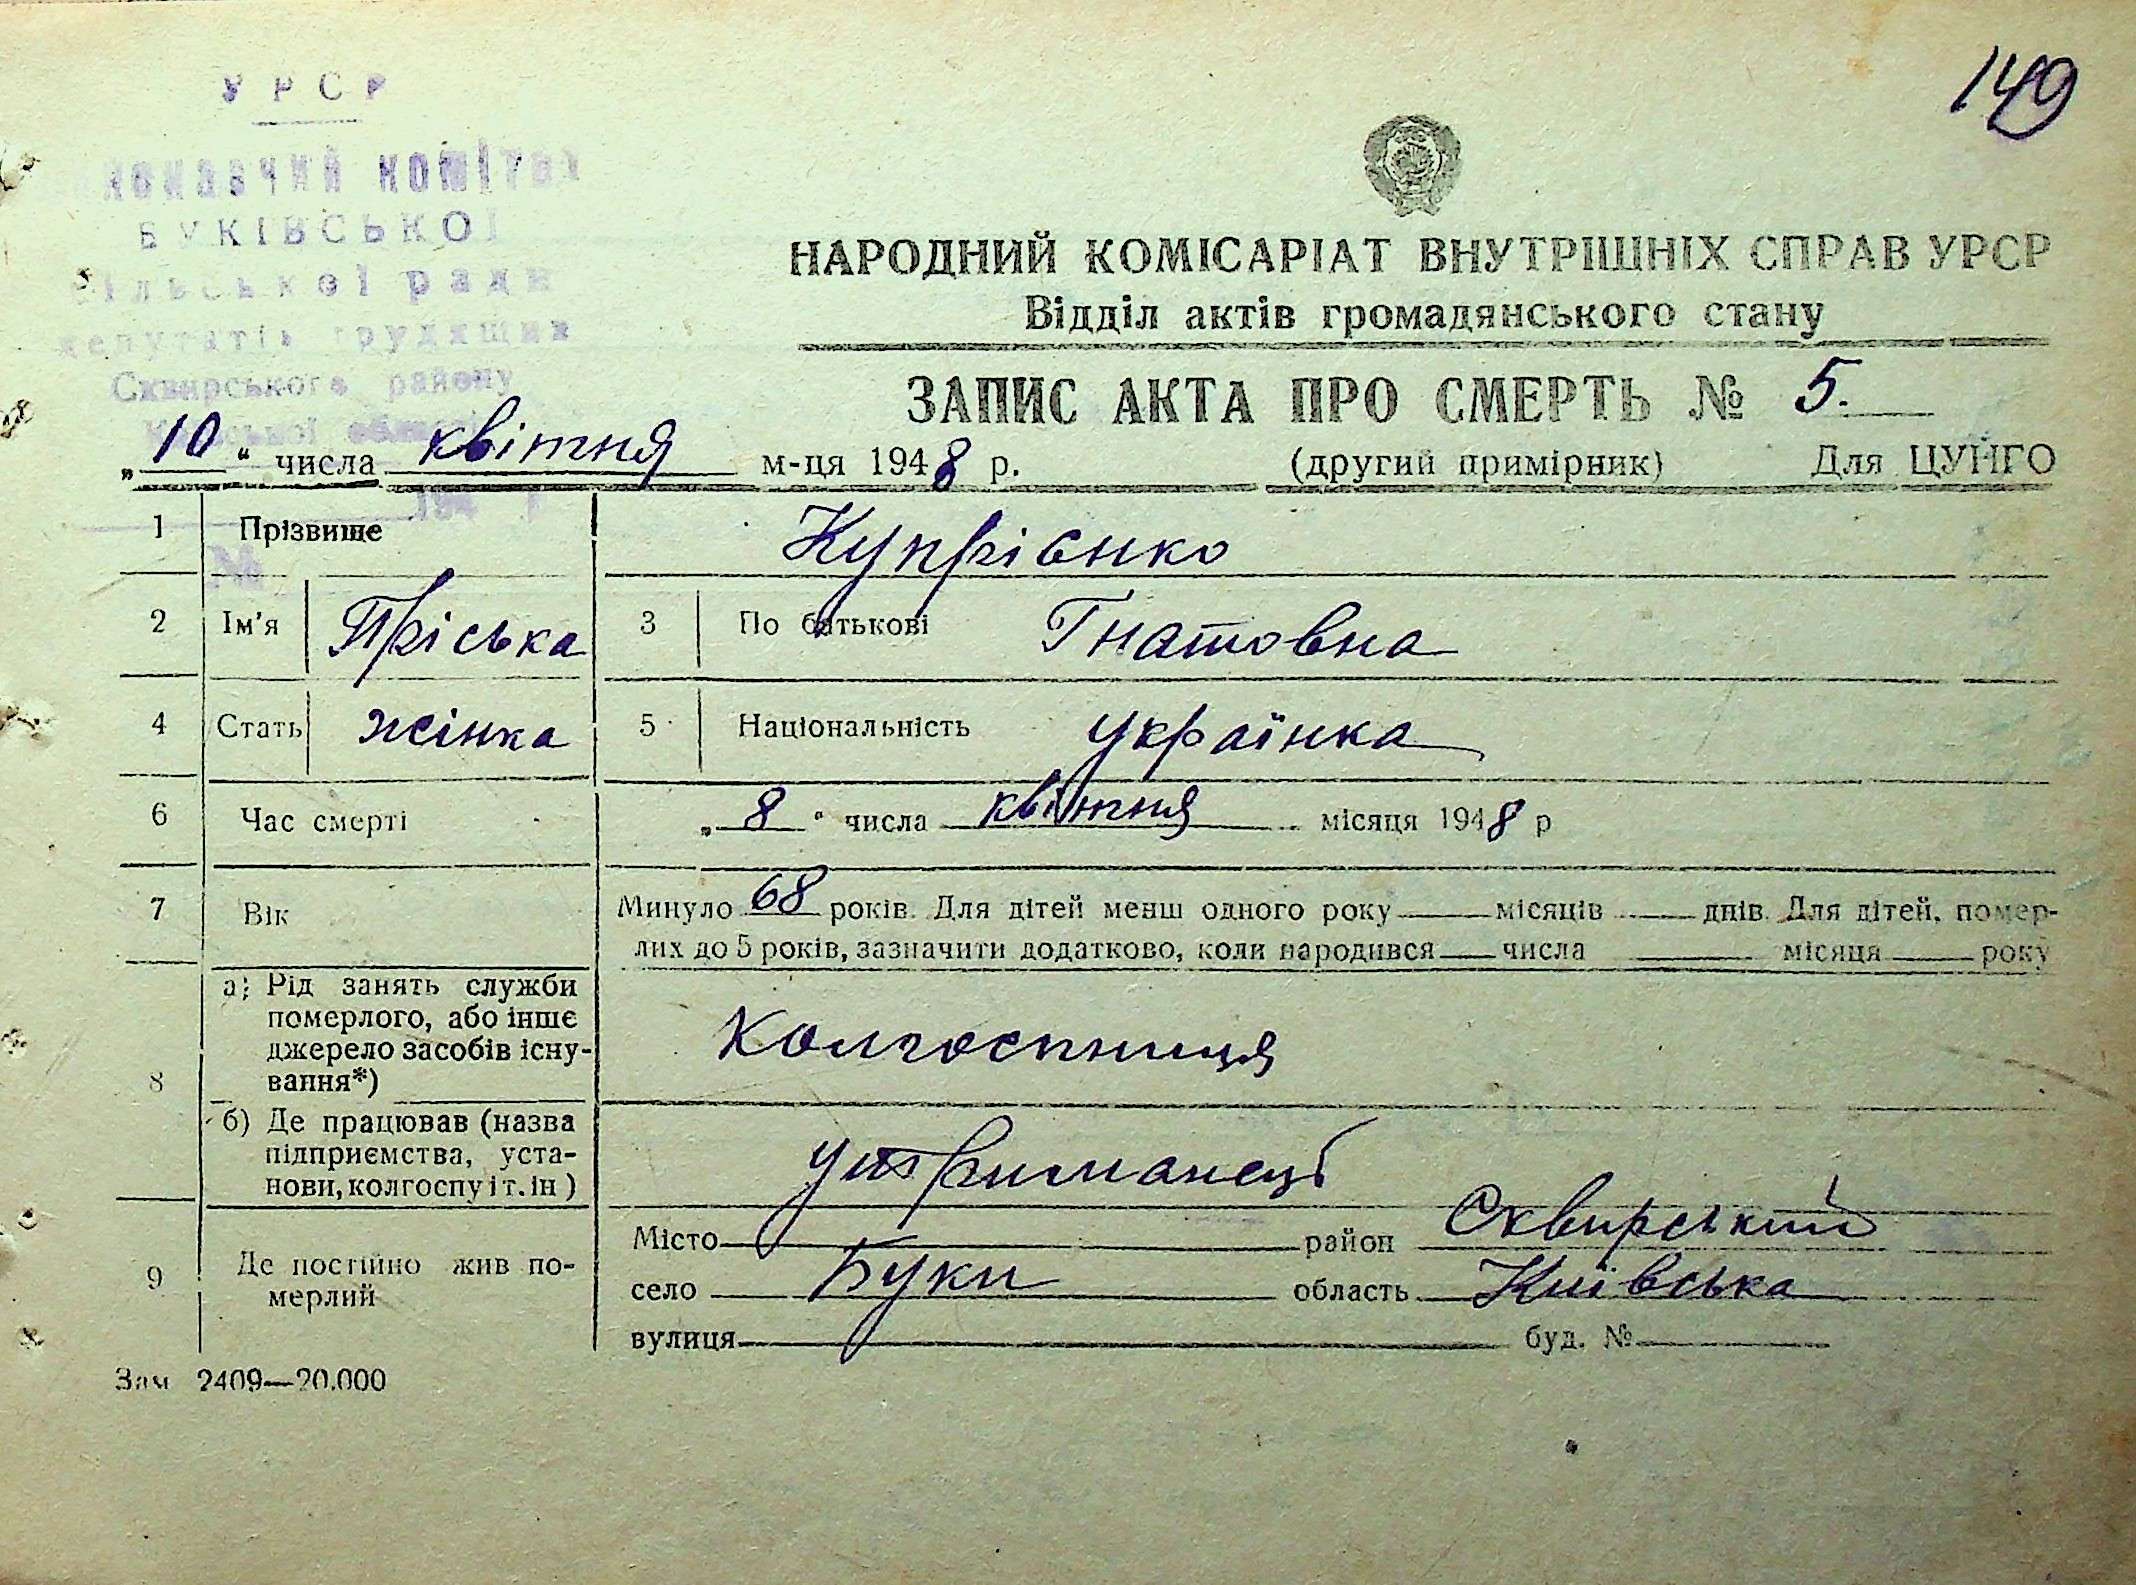 149
УРСР
виконавчий комітет
БУКІВСЬКОЇ
сільської ради
депутатів трудящих
Сквирського району
Київської області
194 р
№
НАРОДНИЙ КОМІСАРІАТ ВНУТРІШНІХ СПРАВ УРСР
Відділ актів громадянського стану
ЗАПИС АКТА ПРО СМЕРТЬ № 5.
„10“ числа квітня м-ця 1948 р. (другий примірник) Для ЦУНГО
1 Прізвище Купрієнко
2 Ім'я Пріська 3 По батькові Гнатовна
4 Стать жінка 5 Національність українка
6 Час смерті „8“ числа квітня місяця 1948 р
7 Вік Минуло 68 років. Для дітей менш одного року місяців днів. Для дітей, помер-
лих до 5 років, зазначити додатково, коли народився числа місяця року
8 а) Рід занять служби
померлого, або інше
джерело засобів існу-
вання*)
Колгоспниця
б) Де працював (назва
підприємства, уста-
нови, колгоспу і т. ін)
утриманець
9 Де постійно жив по-
мерлий
Місто район Сквирський
село Буки область Київська
вулиця буд. №
Зам 2409—20.000